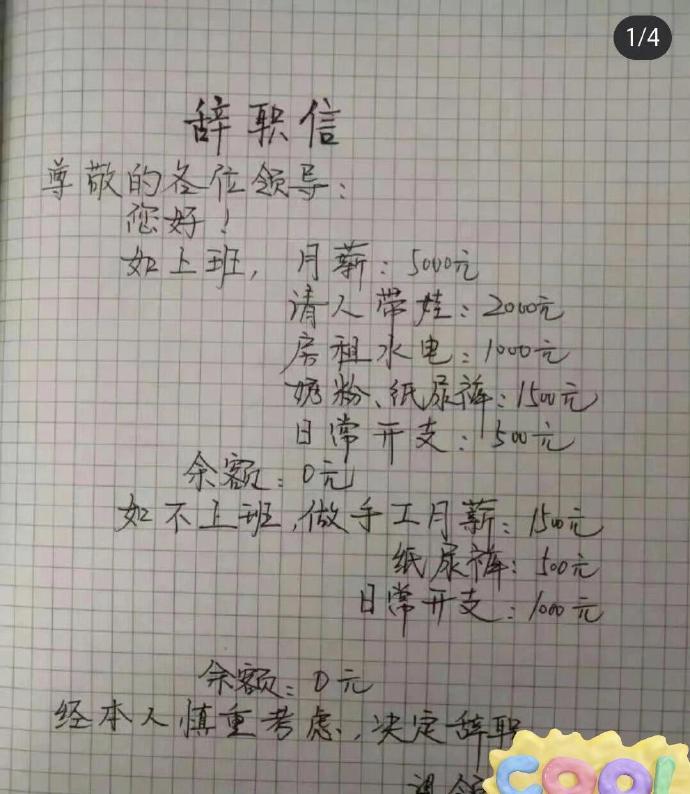 1/4
辞职信
尊敬的各位领导:
您好!
如上班, 月薪: 5000元
请人带娃: 2000元
房租水电: 1000元
奶粉、纸尿裤: 1500元
日常开支: 500元
余额: 0元
如不上班,做手工月薪: 1500元
纸尿裤: 500元
日常开支: 1000元
余额: 0元
经本人慎重考虑, 决定辞职
COOL